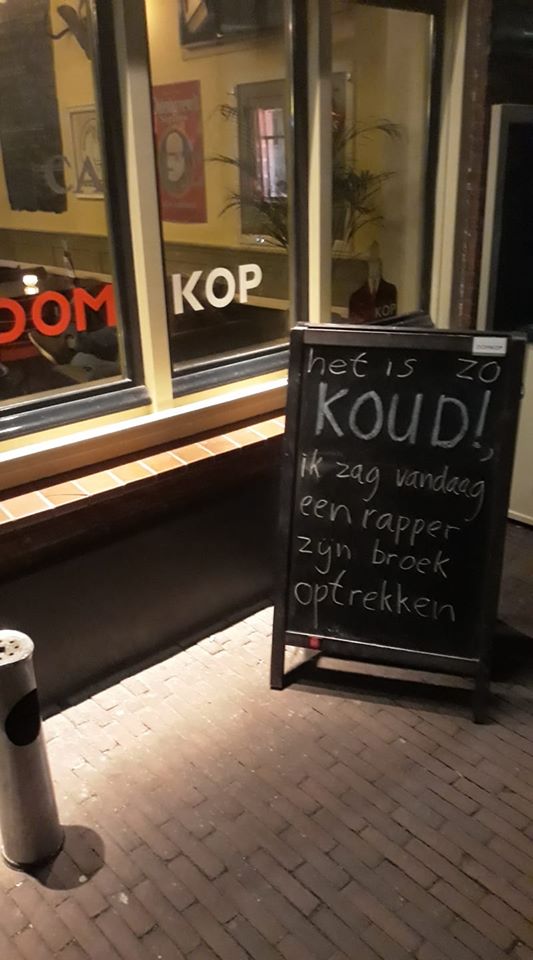 CA
DOM KOP
KOP
DOMKOP
het is zo
KOUD!,
ik zag vandaag
een rapper
zijn broek
optrekken